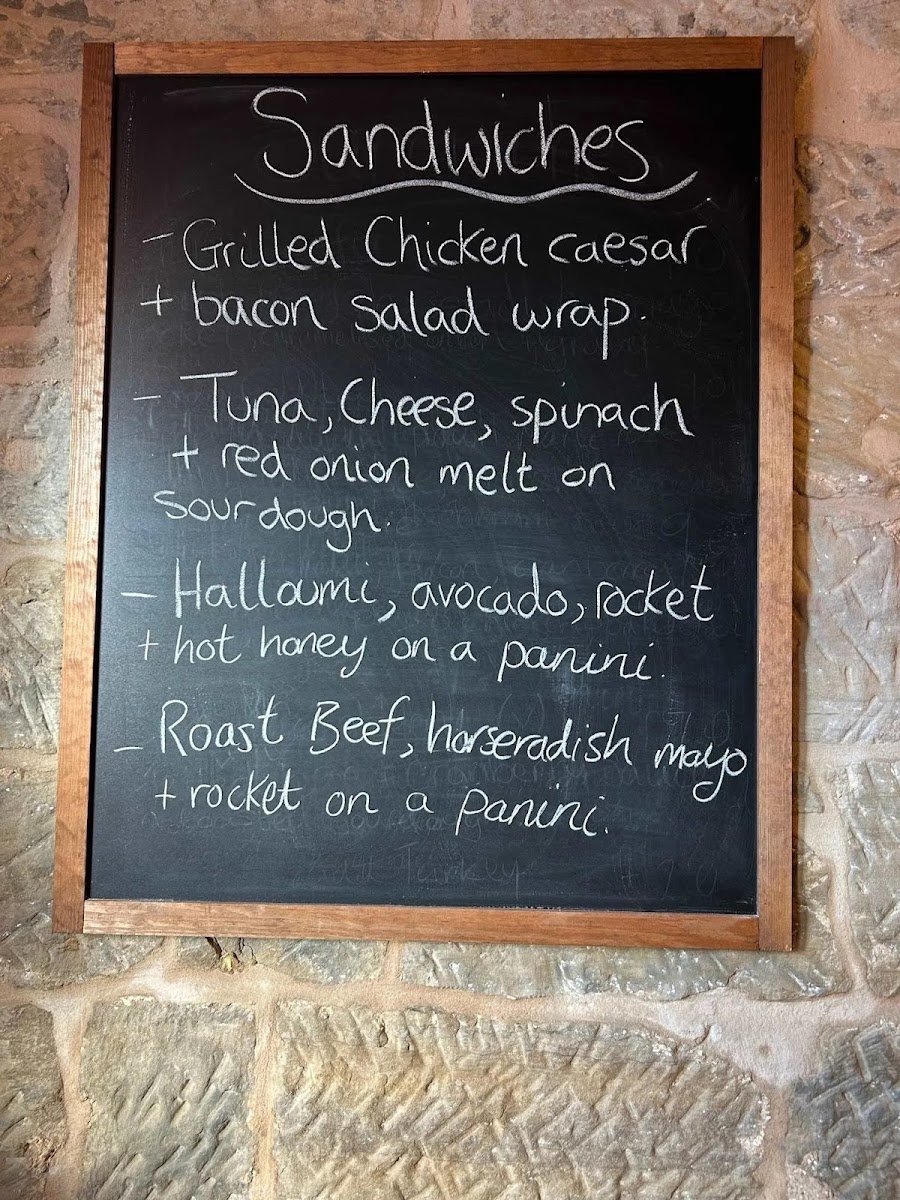 Sandwiches
- Grilled Chicken caesar
+ bacon salad wrap.
- Tuna, Cheese, spinach
+ red onion melt on
sourdough.
- Halloumi, avocado, rocket
+ hot honey on a panini.
- Roast Beef, horseradish mayo
+ rocket on a panini.